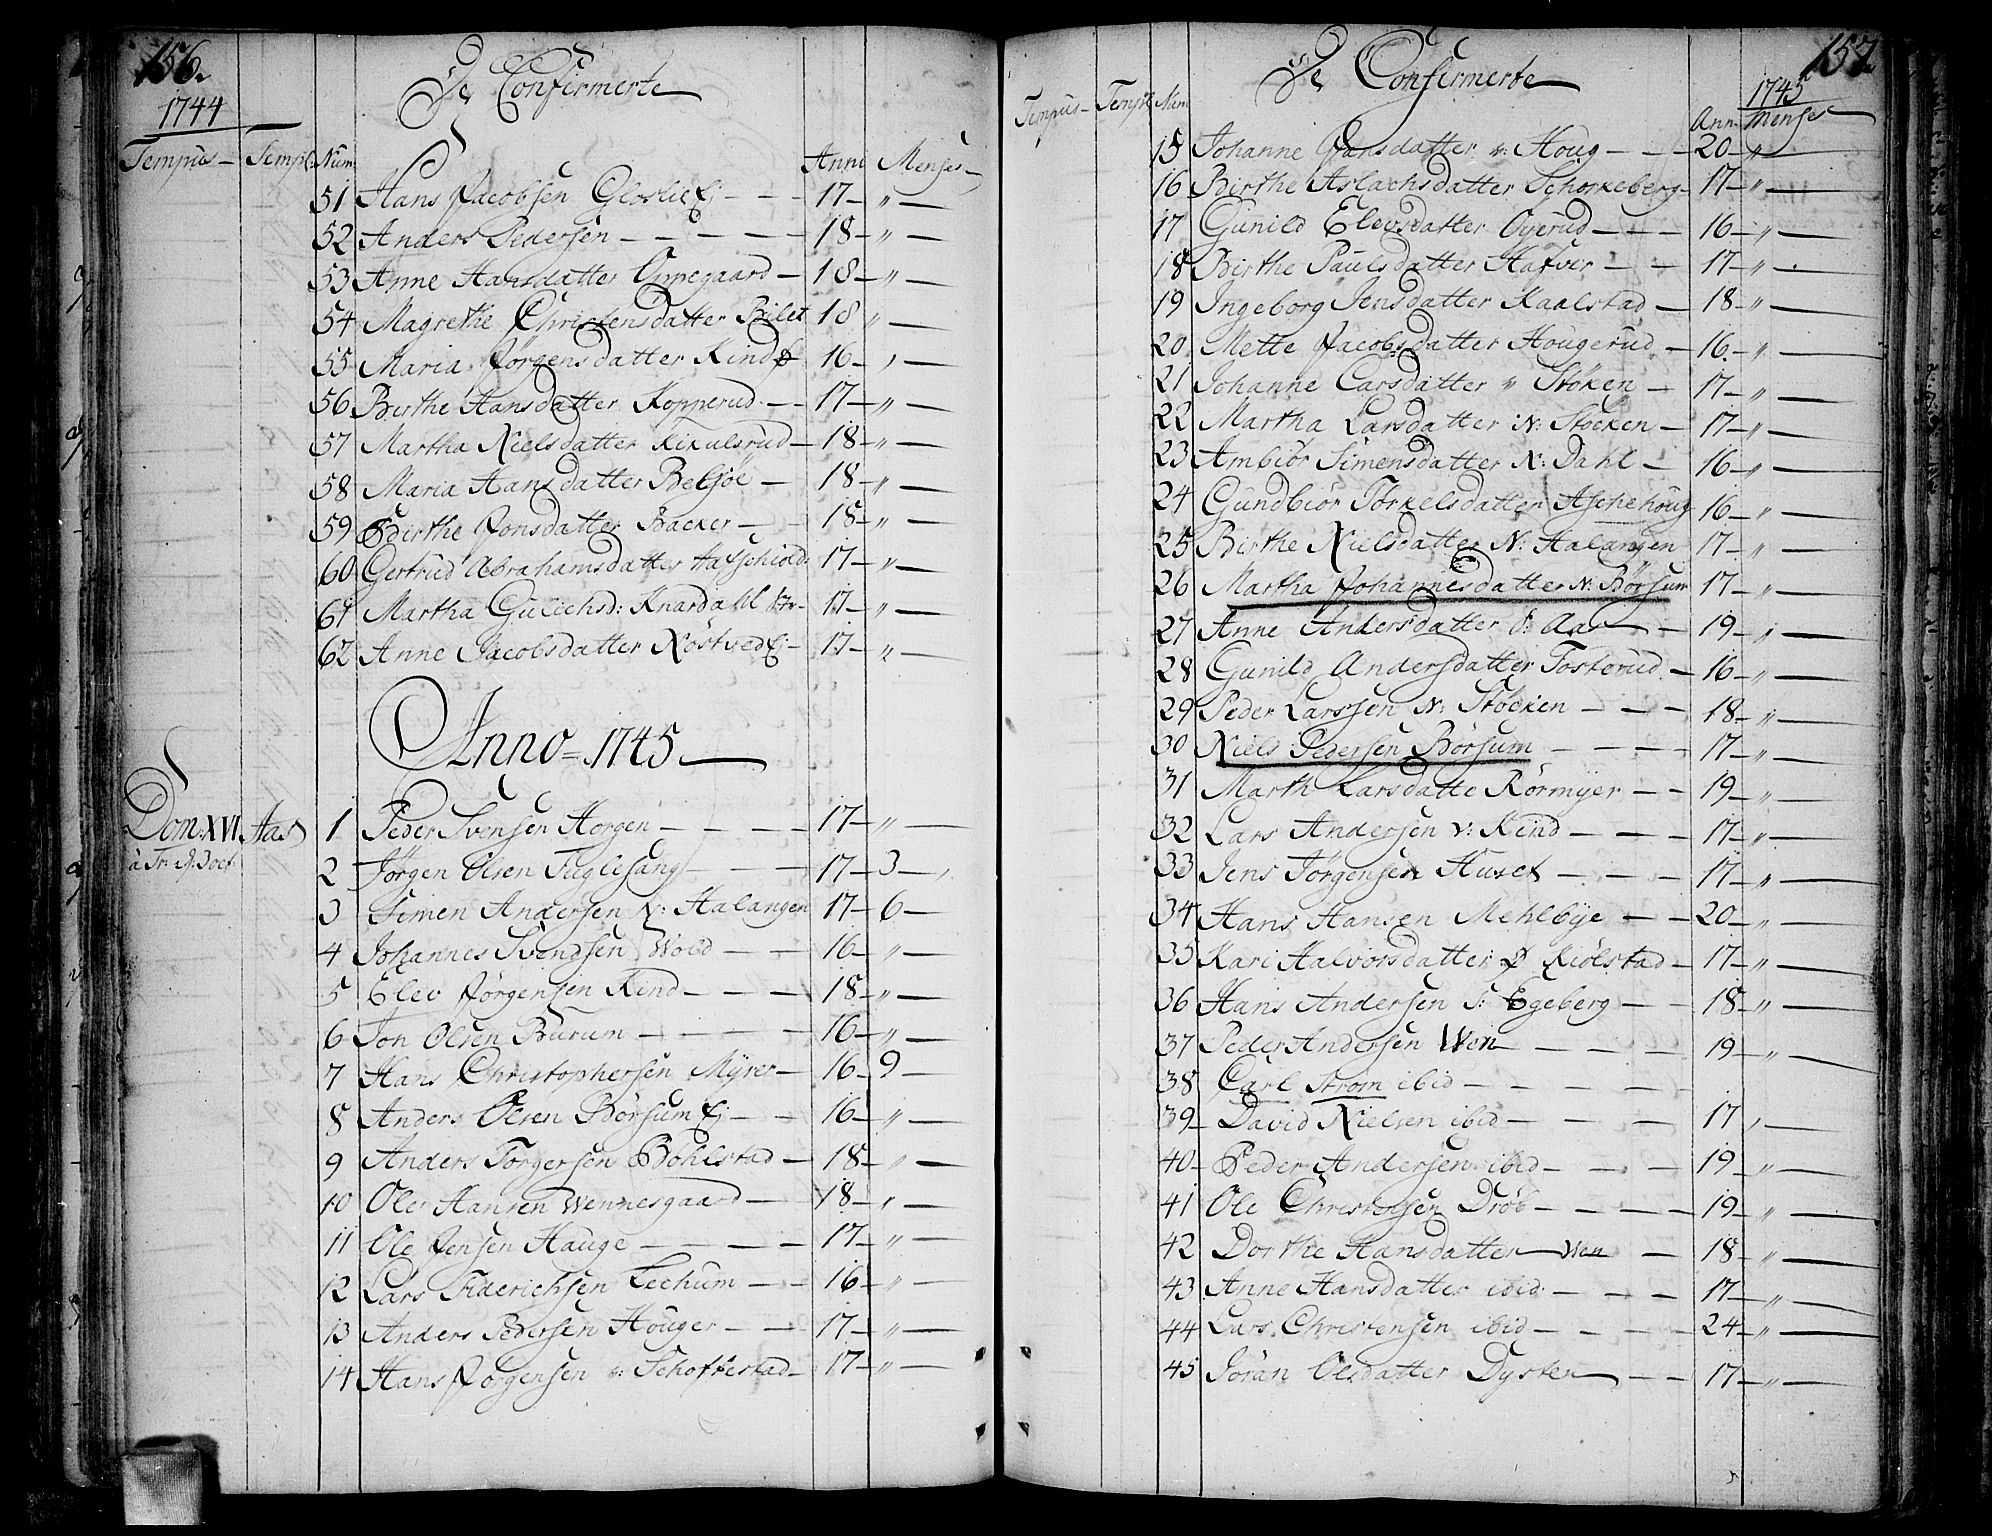 156.
1744
De Confirmerte
Tempus Templ: Num Anni Menses
51 Hans Jacobsen Gloslie Ej: - - - 17 - " -
52 Anders Pedersen - - - - - 18 - " -
53 Anne Hansdatter Oppegaard - 18 - " -
54 Magrethe Christensdatter Bilet 18 " -
55 Maria Jörgensdatter Kind 16 - " -
56 Birthe Hansdatter Kopperud - - 17 - " -
57 Martha Nielsdatter Kikulsrud - 18 - " -
58 Maria Hansdatter Belsjöe - 18 - " -
59 Birthe Jonsdatter Backer - - 18 - " -
60 Gertrud Abrahamsdatter 17 - " -
61 Martha Gulichsd: Knardahl 17 - " -
62 Anne Jacobsdatter Nöstved Ej - 17 - " -
Anno - 1745
Dom: XVI Aas 1 Peder Svensen Horgen - - - - 17 - " -
à Tr: 2 Jörgen Olsen Fuglesang - - - 17 - 3 -
3 Simen Andersen N: Halangen 17 - 6 -
4 Johannes Svendsen Wold - - 16 - " -
5 Elev Jörgensen Kind - - - 18 - " -
6 Jon Olsen Burum - - - - 16 - " -
7 Hans Christophersen Myrer - 16 - 9 -
8 Anders Olsen Börsum Ej: - - 16 - " -
9 Anders Torgersen Bohlstad - 18 - " -
10 Ole Hansen Wennesgaard - 18 - " -
11 Ole Jensen Hauge - - - - 17 - " -
12 Lars Fiderichsen Lechum - - 16 - " -
13 Anders Pedersen Houger - - 17 - " -
14 Hans Jörgensen v: Schoftestad - 17 - " -
157
De Confirmerte
1745
Tempus - Templ Num Ann: Menses
15 Johanne Hansdatter v: Houg - - - 20 - " -
16 Birthe Aslachsdatter Schorkeberg - 17 - " -
17 Gunild Elevsdatter Oyerud - - - 16 - " -
18 Birthe Paulsdatter Hafver - - 17 - " -
19 Ingeborg Jensdatter Kaalstad - 18 - " -
20 Mette Jacobsdatter Hougerud - 16 - " -
21 Johanne Larsdatter " Stöken - 17 - " -
22 Martha Larsdatter N: Stöcken - 17 - " -
23 Ambiör Simensdatter N: Dahl - 16 - " -
24 Gundbiör Torkelsdatter Aschehoug 16 - " -
25 Birthe Nielsdatter N: Halangen 17 - " -
26 Martha Johannesdatter N: Börsum 17 - " -
27 Anne Andersdatter S: Aas - - 19 - " -
28 Gunild Andersdatter Tosterud - 16 - " -
29 Peder Larssen N: Stöcken - - - 18 - " -
30 Niels Pedersen Börsum - - - - 17 - " -
31 Marth Larsdatte Rörmyer - - 19 - " -
32 Lars Andersen v: Kind - - - 17 - " -
33 Jens Jörgensen Huset - - - 17 - " -
34 Hans Hansen Mehlbye - - 20 - " -
35 Kari Halvorsdatter Ø Kiölstad - 17 - " -
36 Hans Andersen S: Egeberg - - 18 - " -
37 Peder Andersen Wen - - - - 19 - " -
38 Carl Strom ibid - - - - -
39 David Nielsen ibid - - - - 17 " -
40 - Peder Andersen ibid - - - - 19 - " -
41 Ole Christensen Dröb - - - - 19 - " -
42 Dorthe Hansdatter - Wen - 18 - " -
43 Anne Hansdatter ibid - - - 17 - " -
44 Lars Christensen ibid - - - - 24 - " -
45 Jöran Olsdatter Dyster - - 17 - " -